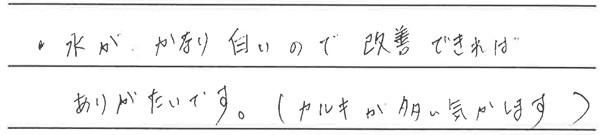 ・水が、かなり白いので 改善できれば
ありがたいです。(カルキが多い気がします)